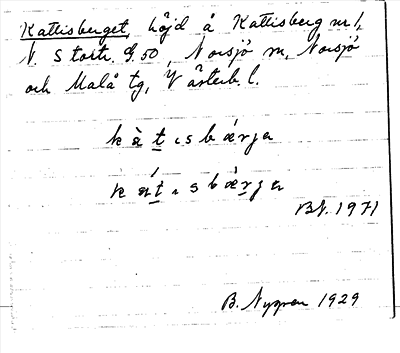 Kattisberget, höjd å Kattisberg nr 1,
N. Stortr. G. 50, Norsjö sn, Norsjö
och Malå tg, Västerb. l.
k à t ı s b ǽ r j a
k á t ı s b ǽ r j a
BN. 1971
B. Nygren 1929